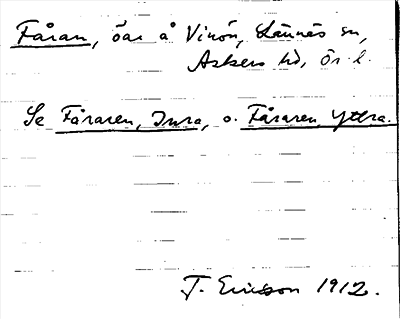 Fåran, öar å Vinön, Lännäs sn,
Askers hd, Ör. l.
Se Fåraren, Inra, o. Fåraren, Yttra.
T. Ericsson 1912.